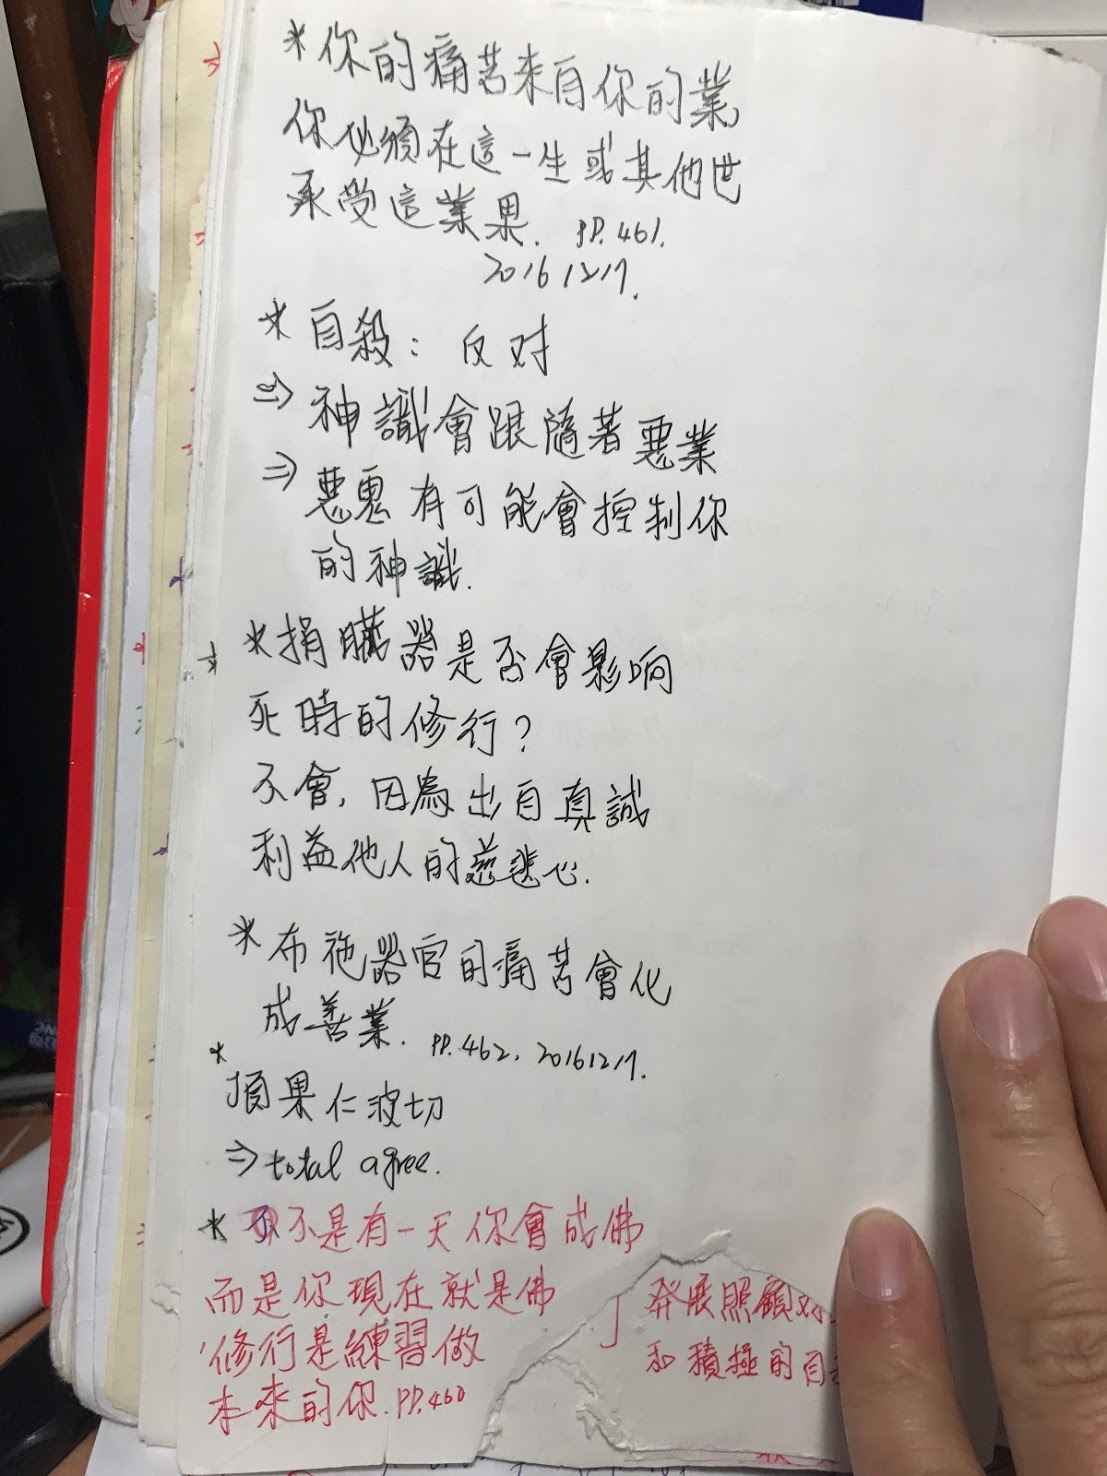 *你的痛苦來自你的業
你必須在這一生或其他世
承受這業果. PP.461.
20161217.
*自殺：反对
⇒神識會跟隨著惡業
⇒惡鬼有可能會控制你
的神識.
*捐臟器是否會影响
死時的修行？
不會，因為出自真誠
利益他人的慈悲心.
*布施器官的痛苦會化
成善業. PP.462, 20161217.
*
頂果仁波切
⇒total agree.
*不是有一天你會成佛
而是你現在就是佛
修行是練習做
本來的你. PP.460
發展照顧对
和積極的自